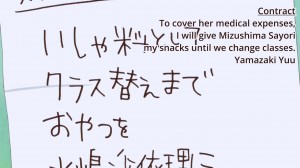 Contract
To cover her medical expenses,
I will give Mizushima Sayori
my snacks until we change classes.
Yamazaki Yuu
いしゃ料として
クラス替えまで
おやつを
水嶋沙依理に